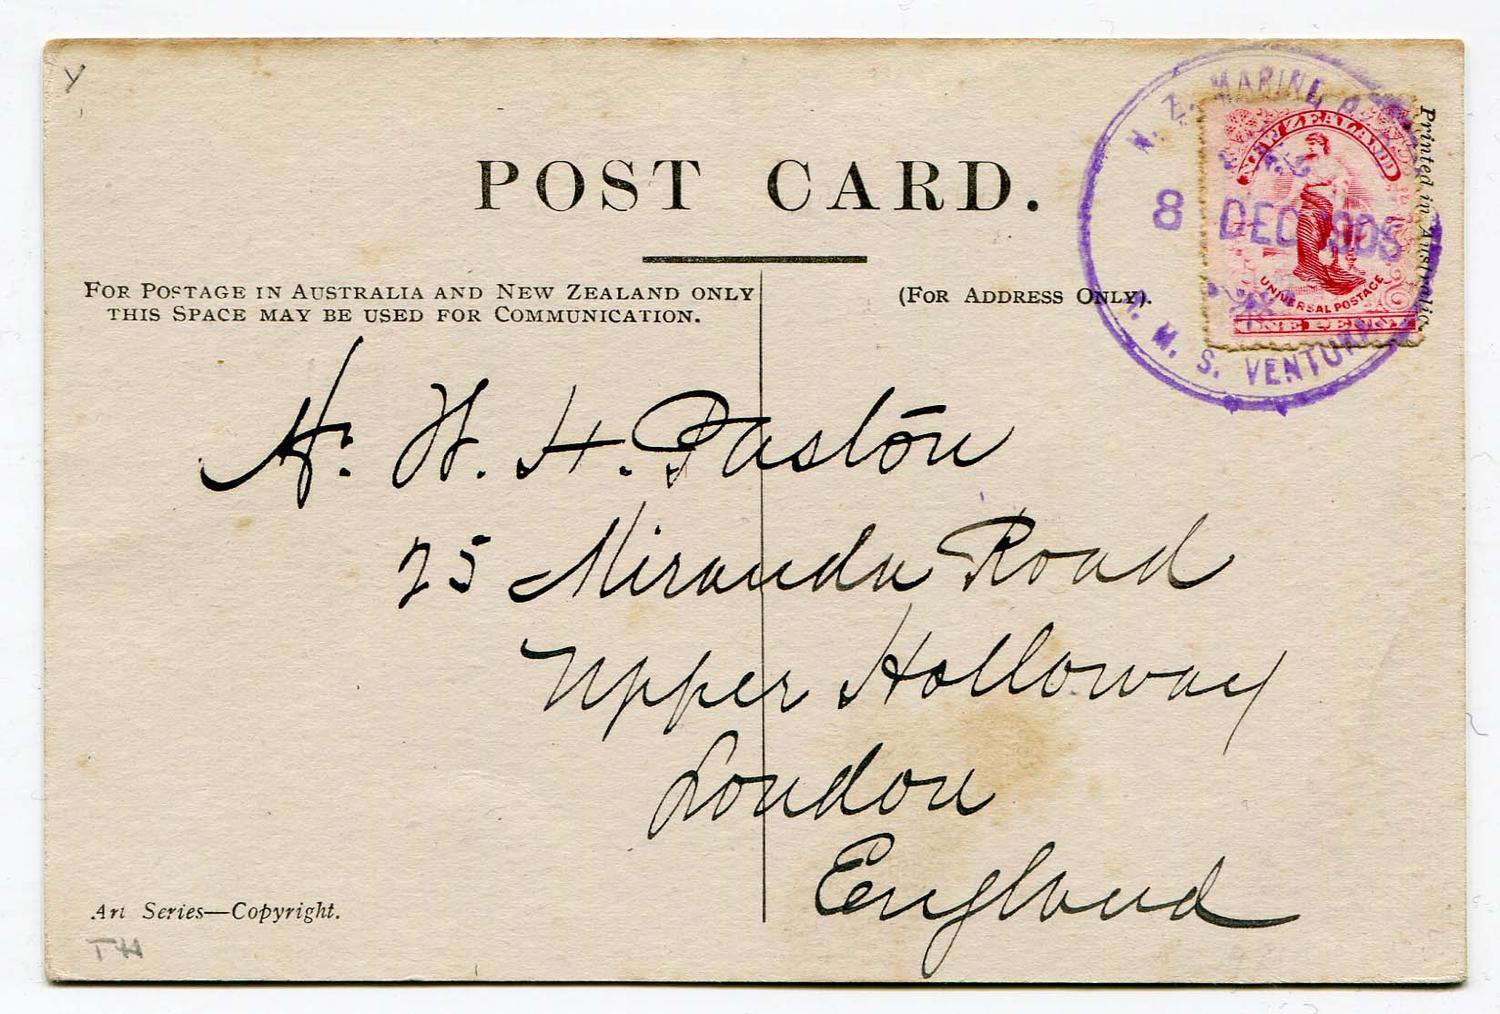 Y
POST CARD.
FOR POSTAGE IN AUSTRALIA AND NEW ZEALAND ONLY
THIS SPACE MAY BE USED FOR COMMUNICATION.
(FOR ADDRESS ONLY).
N. Z. MARINE P.
8 DEC 1905
R. M. S. VENTURA
NEW ZEALAND
UNIVERSAL POSTAGE
ONE PENNY
Printed in Australia.
H. W. H. Paston
25 Miranda Road
Upper Holloway
London
England
Art Series—Copyright.